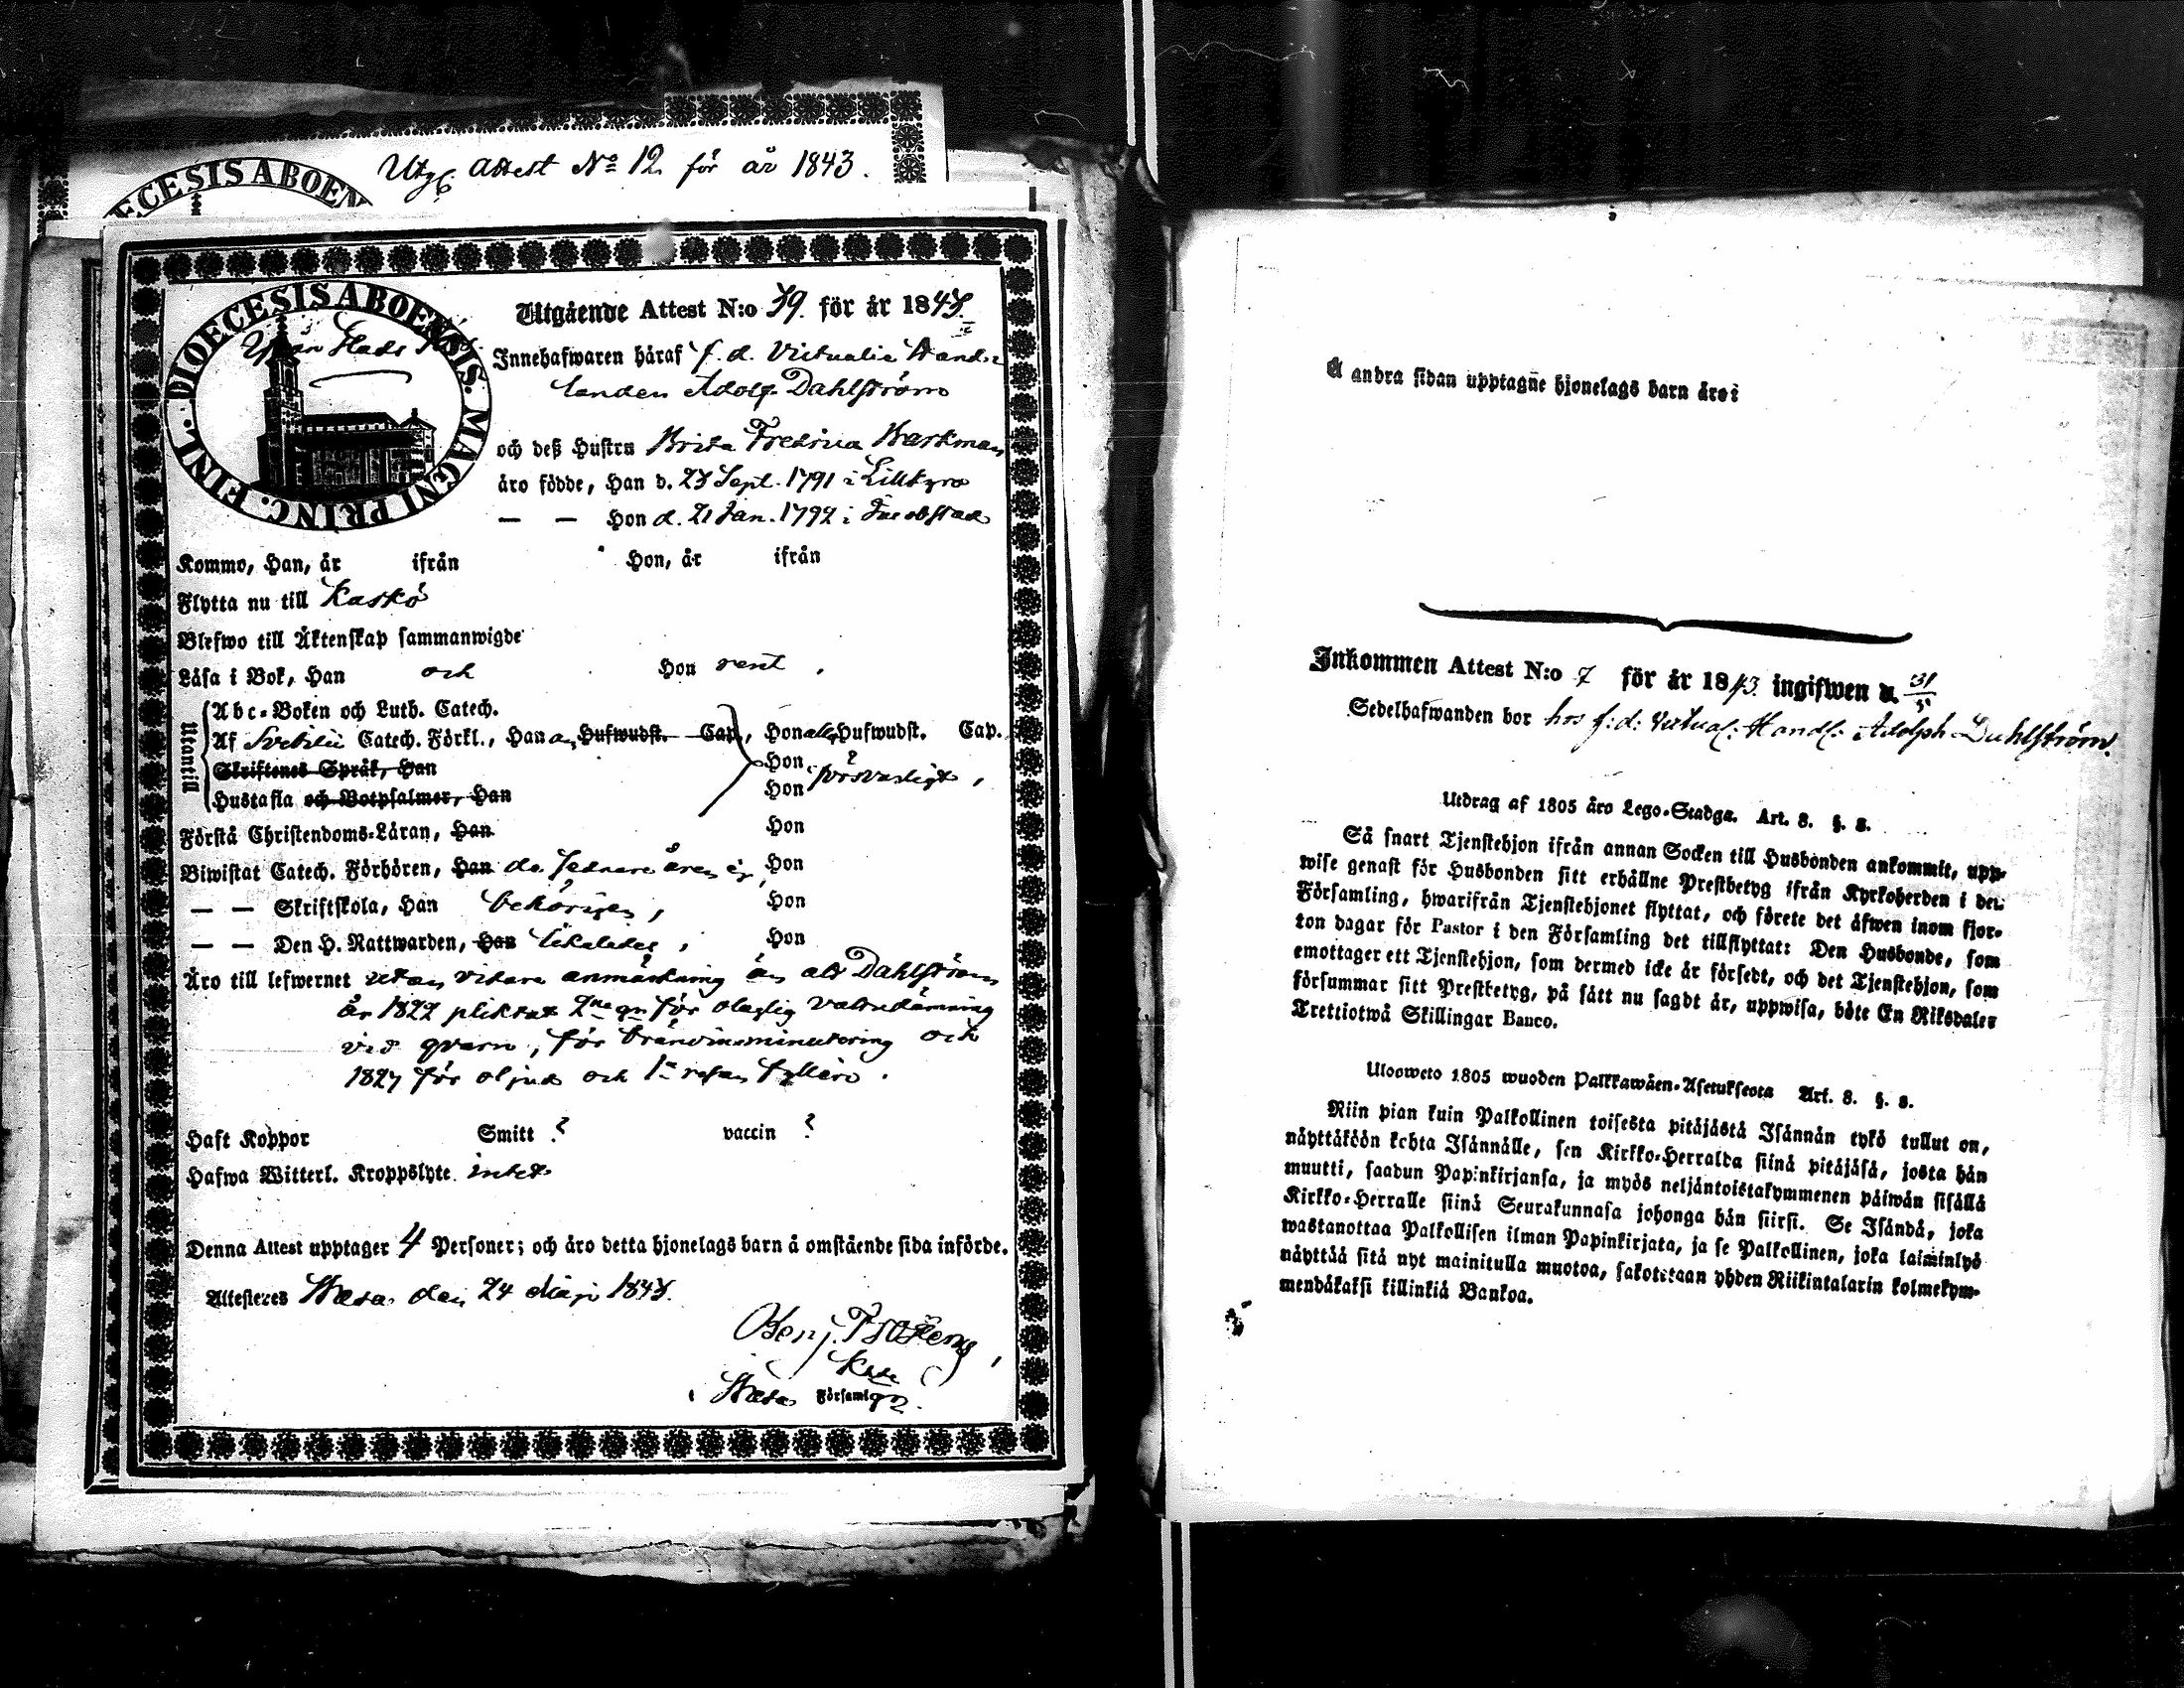 Utg: Attest No 12 för år 1843.
ECESIS ABOEN
DIOECESIS ABOENSIS. MAGNI PRINC. FINL.
Utgående Attest N:o 39. för år 1843.
Innehafwaren häraf f. d. Victualie Hand-
landen Adolf Dahlström
och deß Hustru Brita Fredrica Barkman
äro födde, Han d. 23 Sept. 1791 i Lillkyro
— — Hon d. 21 Jan. 1792 i Jacobstad
Kommo, Han, år ifrån Hon, år ifrån
Flytta nu till Kaskö
Blefwo till Äktenskap sammanwigde
Läsa i Bok, Han och Hon rent,
Utantill
Abc-Boken och Luth. Catech.
Af Svebilii Catech. Förkl., Han Hufwudst. Cap., Hon alla Hufwudst. Cap.
Skriftenes Språk, Han Hon
Hustafla och Botpsalmer, Han Hon försvarligt,
Förstå Christendoms-Läran, Han Hon
Biwistat Catech. Förhören, Han de sednare åren ej, Hon
— — Skriftskola, Han behörigen, Hon
— — Den H. Nattwarden, Han likaledes, Hon
Äro till lefwernet utan vidare anmärkning än att Dahlström
år 1822 pliktat 2ne gr för olaglig
vid qvarn, för bränvinsminutering och
1827 för oljud och 1a resan fylleri.
Haft Koppor Smitt ? vaccin ?
Hafwa Witterl. Kroppslyte intet
Denna Attest upptager 4 Personer; och äro detta hjonelags barn å omstående sida införde.
Attesteres Wasa den 24 Maji 1843.
Benj. Frosterus
i Wasa Församlg
A andra sidan upptagne hjonelags barn äro:
Inkommen Attest N:o 7 för år 1843. ingifwen d. 31/5
Sedelhafwanden bor hos f: d: Victual: Handl: Adolph Dahlström.
Utdrag af 1805 åro Lego-Stadga. Art. 8. §. 8.
Så snart Tjenstehjon ifrån annan Socken till Husbonden ankommit, upp-
wise genast för Husbonden sitt erhållne Prestbetyg ifrån Kyrkoherden i den
Församling, hwarifrån Tjenstehjonet flyttat, och förete det äfwen inom fjor-
ton dagar för Pastor i den Församling det tillflyttat: Den Husbonde, som
emottager ett Tjenstehjon, som dermed icke är försedt, och det Tjenstehjon, som
försummar sitt Prestbetyg, på sätt nu sagdt är, uppwisa, böte En Riksdaler
Trettiotwå Skillingar Banco.
Uloosweto 1805 wuoden Palkkawäen-Asetuksesta Art. 8. §. 8.
Niin pian kuin Palkollinen toisesta pitäjästä Isännän tykö tullut on,
näyttäköön kohta Isännälle, sen Kirkko-Herralda siinä pitäjäsä, josta hän
muutti, saadun Papinkirjansa, ja myös neljäntoistakymmenen päiwän sisällä
Kirkko-Herralle siinä Seurakunnasa johonga hän siirsi. Se Isändä, joka
wastanottaa Palkollisen ilman Papinkirjata, ja se Palkollinen, joka laiminlyö
näyttää sitä nyt mainitulla muotoa, sakotetaan yhden Riikintalarin kolmekym-
mendäkaksi killinkiä Bankoa.